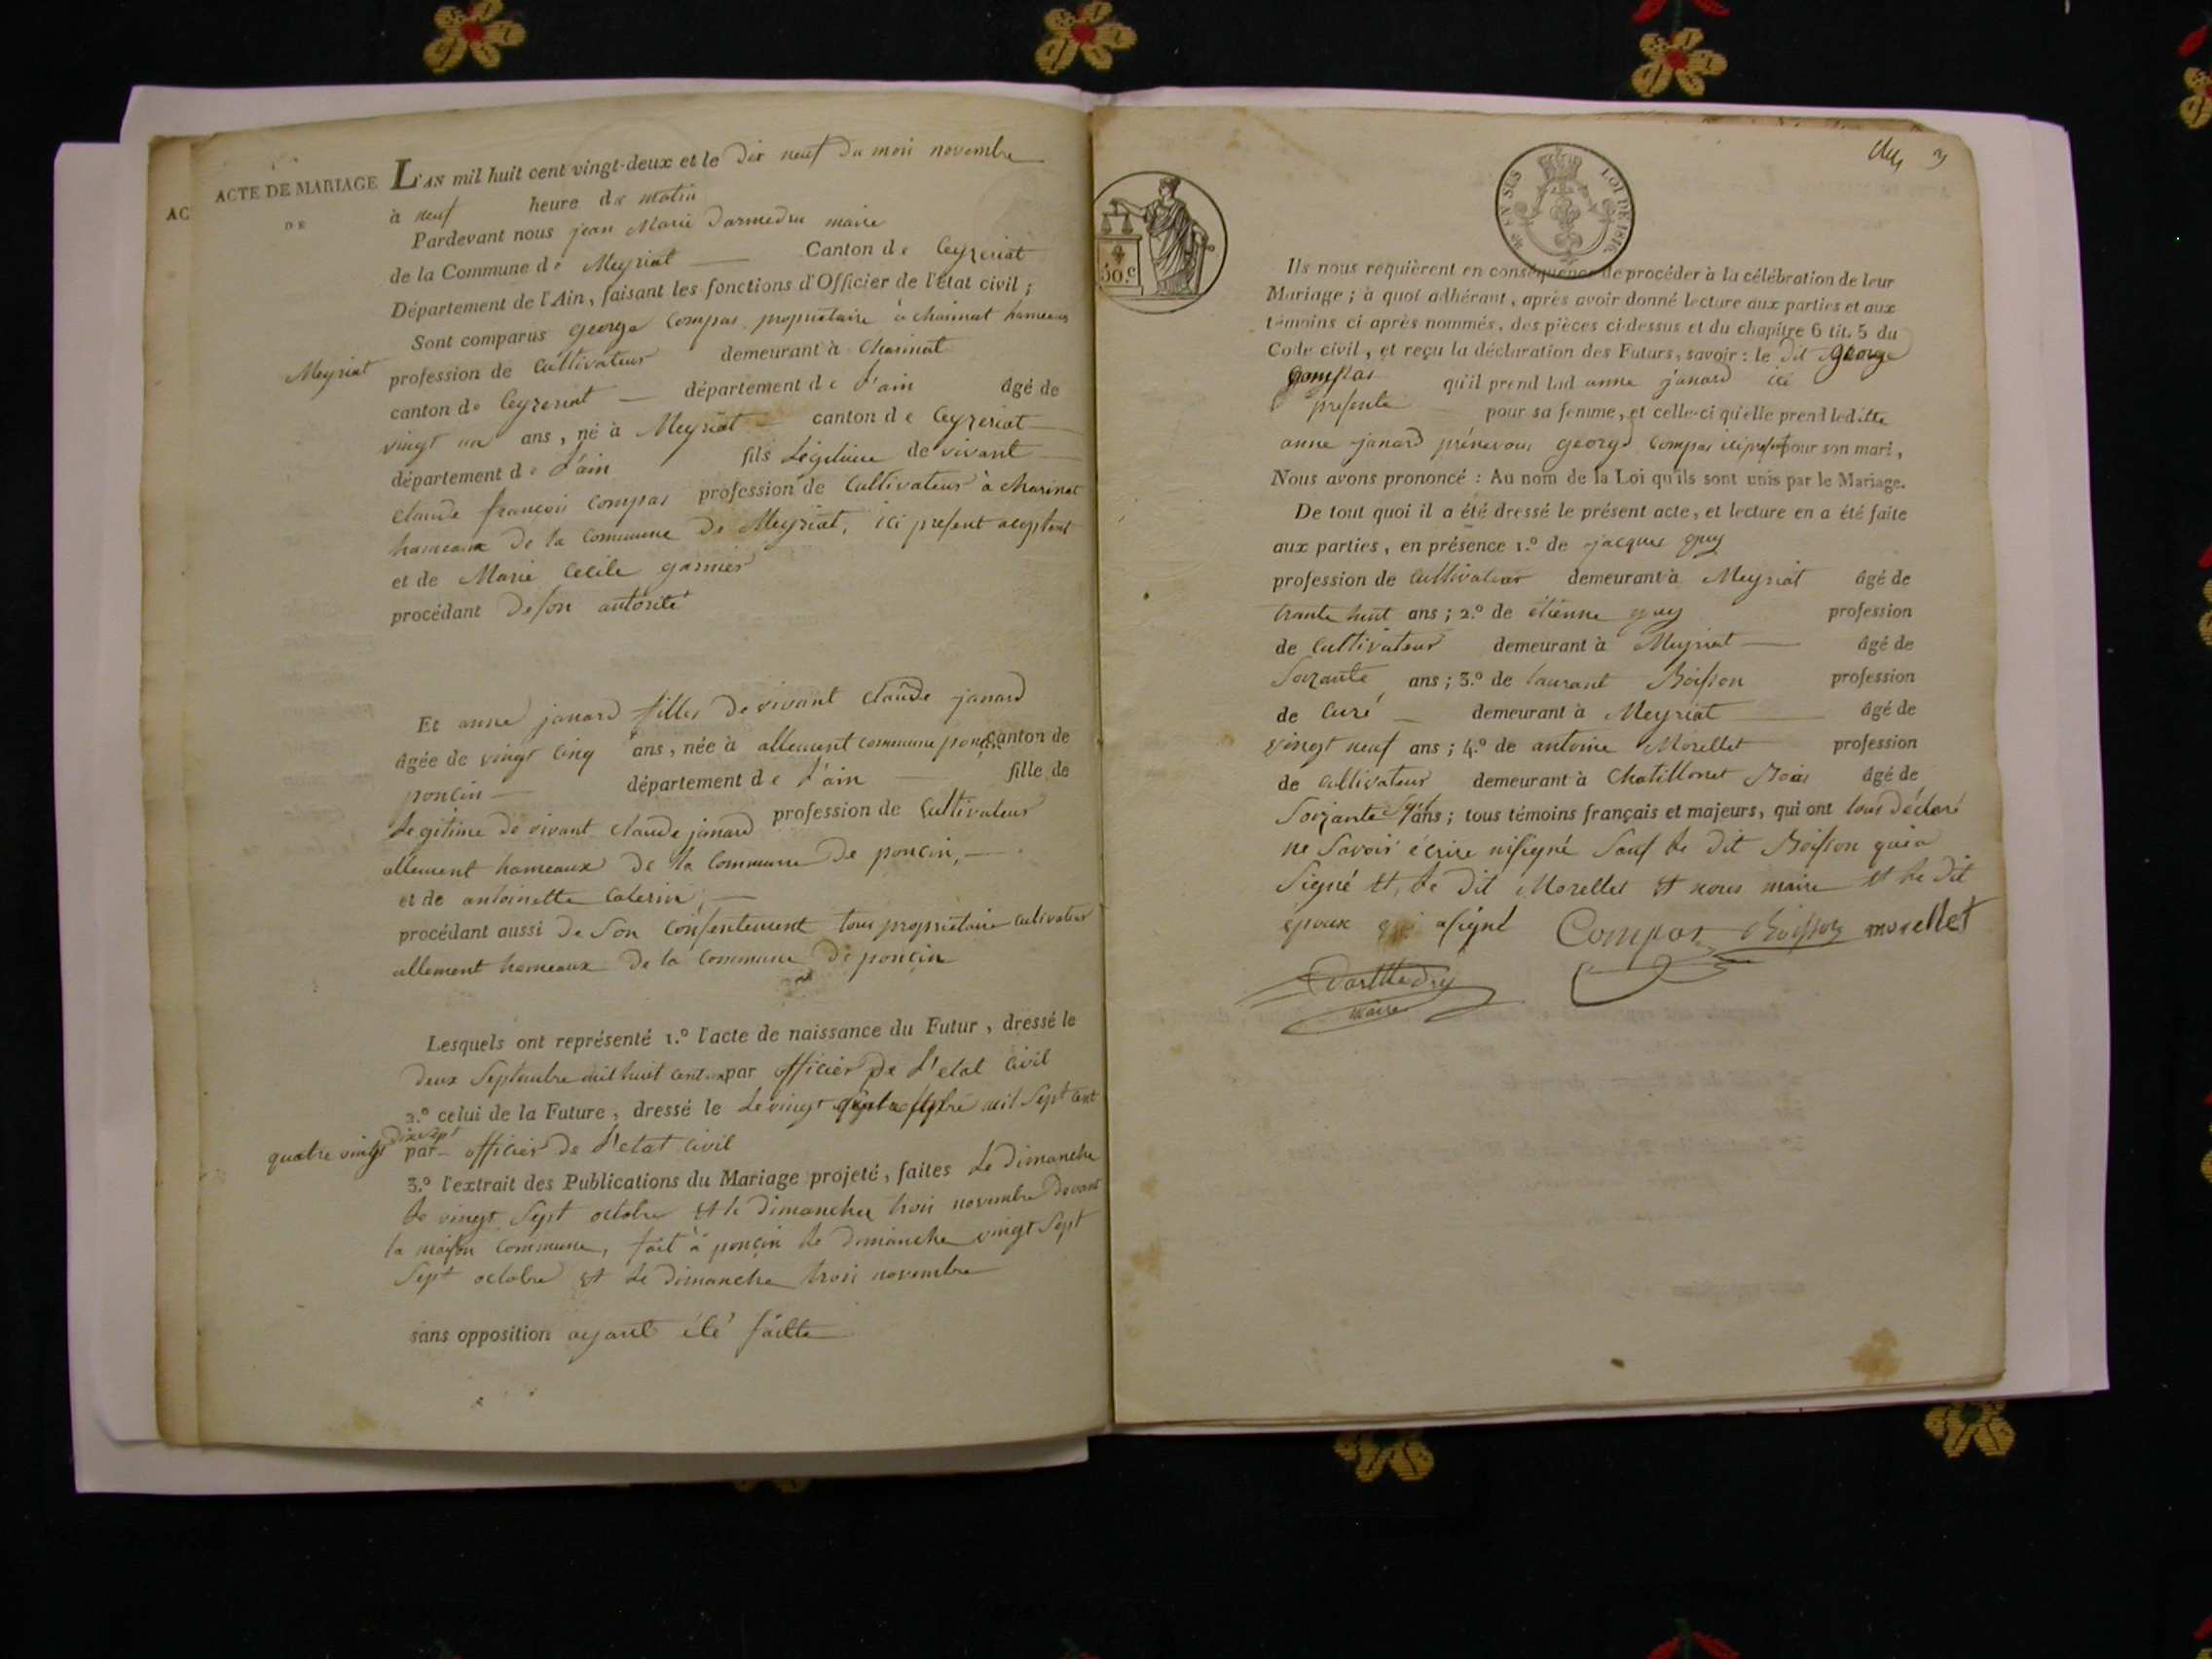 AC
ACTE DE MARIAGE
DE
L'AN mil huit cent vingt-deux et le dix neuf du mois novembre
à neuf heure du matin
Pardevant nous jean Marie darmedru maire
de la Commune de Meyriat Canton de Ceyzeriat
Département de l'Ain, faisant les fonctions d'Officier de l'état civil ;
Sont comparus george Compas propriétaire à Charinat hameaux
Meyriat
profession de Cultivateur demeurant à Charinat
canton de Ceyzeriat département de L'ain âgé de
vingt un ans, né à Meyriat canton de Ceyzeriat
département de L'ain fils Légitime de vivant
Claude françois Compas profession de Cultivateur à Charinat
hameaux de la Commune de Meyriat, ici present
et de Marie Cecile garnier
procédant de son autorité
Et anne janard filles de vivant Claude janard
âgée de vingt cinq ans, née à allement commune canton de
poncin département de L'ain fille de
Legitime de vivant Claude janard profession de Cultivateur
allement hameaux de la Commune de poncin,
et de antoinette
procédant aussi de Son Consentement tous propriétaire cultivateur
allement hameaux de la Commune de poncin
Lesquels ont représenté 1.º l'acte de naissance du Futur, dressé le
deux Septembre mil huit cent par officier de L'etat Civil
2.º celui de la Future, dressé le Le vingt mil Sept Cent
quatre vingt dix sept par officier de L'etat Civil
3.º l'extrait des Publications du Mariage projeté, faites Le dimanche
Le vingt Sept octobre et le dimanche trois novembre devant
la maison Commune, fait à poncin Le dimanche vingt Sept
Sept octobre et Le dimanche trois novembre
sans opposition ayant été faitte
50.c
EN SUS
LOI DE 1816
Ils nous requièrent en conséquence de procéder à la célébration de leur
Mariage ; à quoi adhérant, après avoir donné lecture aux parties et aux
témoins ci-après nommés, des pièces ci-dessus et du chapitre 6 tit. 5 du
Code civil, et reçu la déclaration des Futurs, savoir : le dit george
Compas qu'il prend lad anne janard ici
présente pour sa femme, et celle-ci qu'elle prend ledit
anne janard george Compas pour son mari,
Nous avons prononcé : Au nom de la Loi qu'ils sont unis par le Mariage.
De tout quoi il a été dressé le présent acte, et lecture en a été faite
aux parties, en présence 1.º de jacques
profession de Cultivateur demeurant à Meyriat âgé de
trante huit ans ; 2.º de étienne profession
de Cultivateur demeurant à Meyriat âgé de
Soizante ans ; 3.º de laurant Boisson profession
de Curé demeurant à Meyriat âgé de
vingt neuf ans ; 4.º de antoine Morellet profession
de Cultivateur demeurant à Chatillonet âgé de
Soizante Sept ans ; tous témoins français et majeurs, qui ont tous déclaré
ne Savoir écrire ni signé Sauf Le dit Boisson qui a
Signé et Le dit Morellet et nous maire et Le dit
epoux qui a signé Compas Boisson morellet
maire